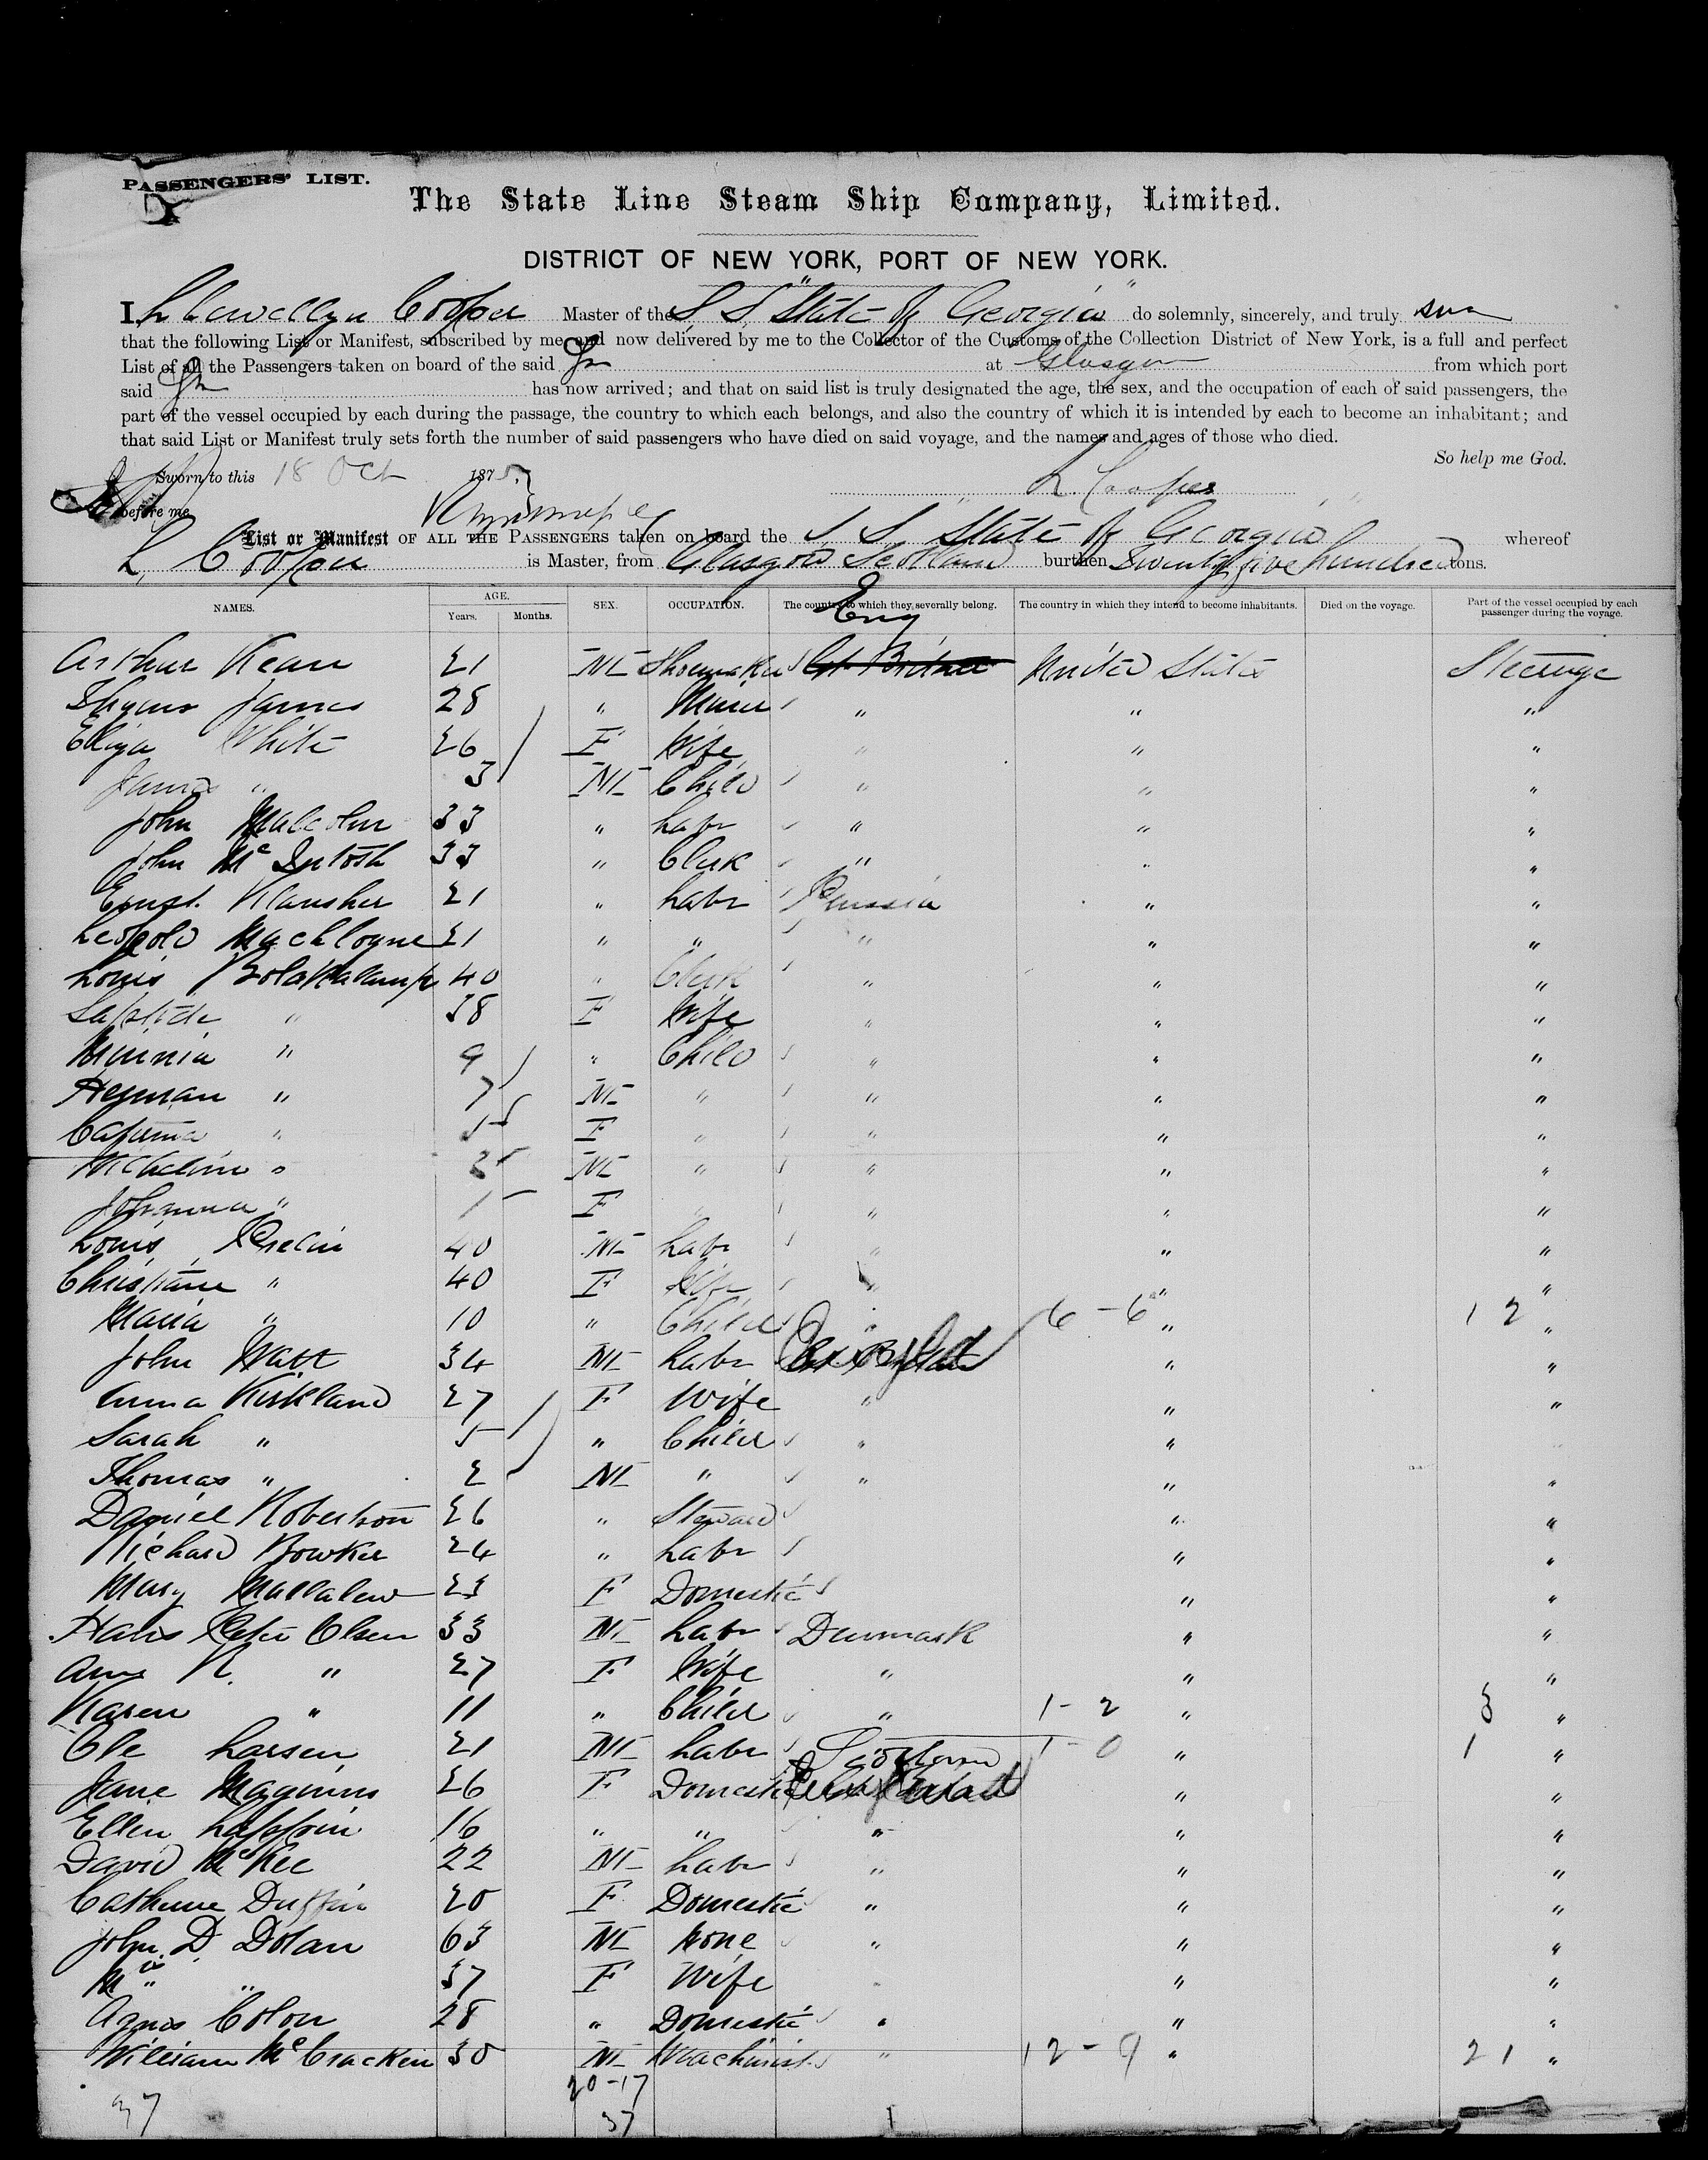 PASSENGERS' LIST.
The State Line Steam Ship Company, Limited.
DISTRICT OF NEW YORK, PORT OF NEW YORK.
I, Llewellyn Cooper Master of the S. S. "State of Georgia" do solemnly, sincerely, and truly
that the following List or Manifest, subscribed by me, and now delivered by me to the Collector of the Customs of the Collection District of New York, is a full and perfect
List of all the Passengers taken on board of the said at Glasgow from which port
said has now arrived; and that on said list is truly designated the age, the sex, and the occupation of each of said passengers, the
part of the vessel occupied by each during the passage, the country to which each belongs, and also the country of which it is intended by each to become an inhabitant; and
that said List or Manifest truly sets forth the number of said passengers who have died on said voyage, and the names and ages of those who died.
So help me God.
Sworn to this 18 Oct 1875
L. Cooper
before me
List or Manifest OF ALL THE PASSENGERS taken on board the S. S. State of Georgia whereof
L. Cooper is Master, from Glasgow Scotland burthen Twenty five hundred tons.
NAMES. AGE. Years. Months. SEX. OCCUPATION. The country to which they severally belong. The country in which they intend to become inhabitants. Died on the voyage. Part of the vessel occupied by each passenger during the voyage.
Eng
Arthur Kean 21 M Shoemaker Gt Britain United States Steerage
James 28 " Miner " " "
Eliza White 26 F Wife " " "
James " 3 M Child " " "
John Malcolm 33 " Labr " " "
John McIntosh 33 " Clerk " " "
Ernst 21 " Labr Prussia " "
Leopold 21 " " " " "
Louis 40 " Clerk " " "
" 38 F Wife " " "
Minnia " 9 " Child " " "
Herman " 7 M " " " "
" 5 F " " " "
" 3 M " " " "
Johanna " 1 F " " " "
Louis 40 M Labr " " "
Christiane " 40 F Wife " " "
Maria " 10 " Child " 6-6 " 12 "
John Watt 34 M Labr " "
Anna Kirkland 27 F Wife " " "
Sarah " 5 " Child " "
Thomas " 2 M " " " "
Daniel Robertson 26 " Steward " "
Richard Bowker 24 " Labr " "
Mary 23 F Domestic " "
Hans Peter Olsen 33 M Labr Denmark " "
Ane K. " 27 F Wife " " "
Karen " 11 " Child " 1-2 " 3 "
Ole Larsen 21 M Labr 1-0 " 1 "
Jane Maginns 26 F Domestic " "
Ellen Lappin 16 " " " " "
David McKee 22 M Labr " " "
Catherine Duffin 20 F Domestic " " "
John D Dolan 63 M None " " "
Mrs " " 37 F Wife " " "
Agnes Colon 28 " Domestic " " "
William McCracken 30 M Machinist " 12-9 " 21 "
20-17
37 37